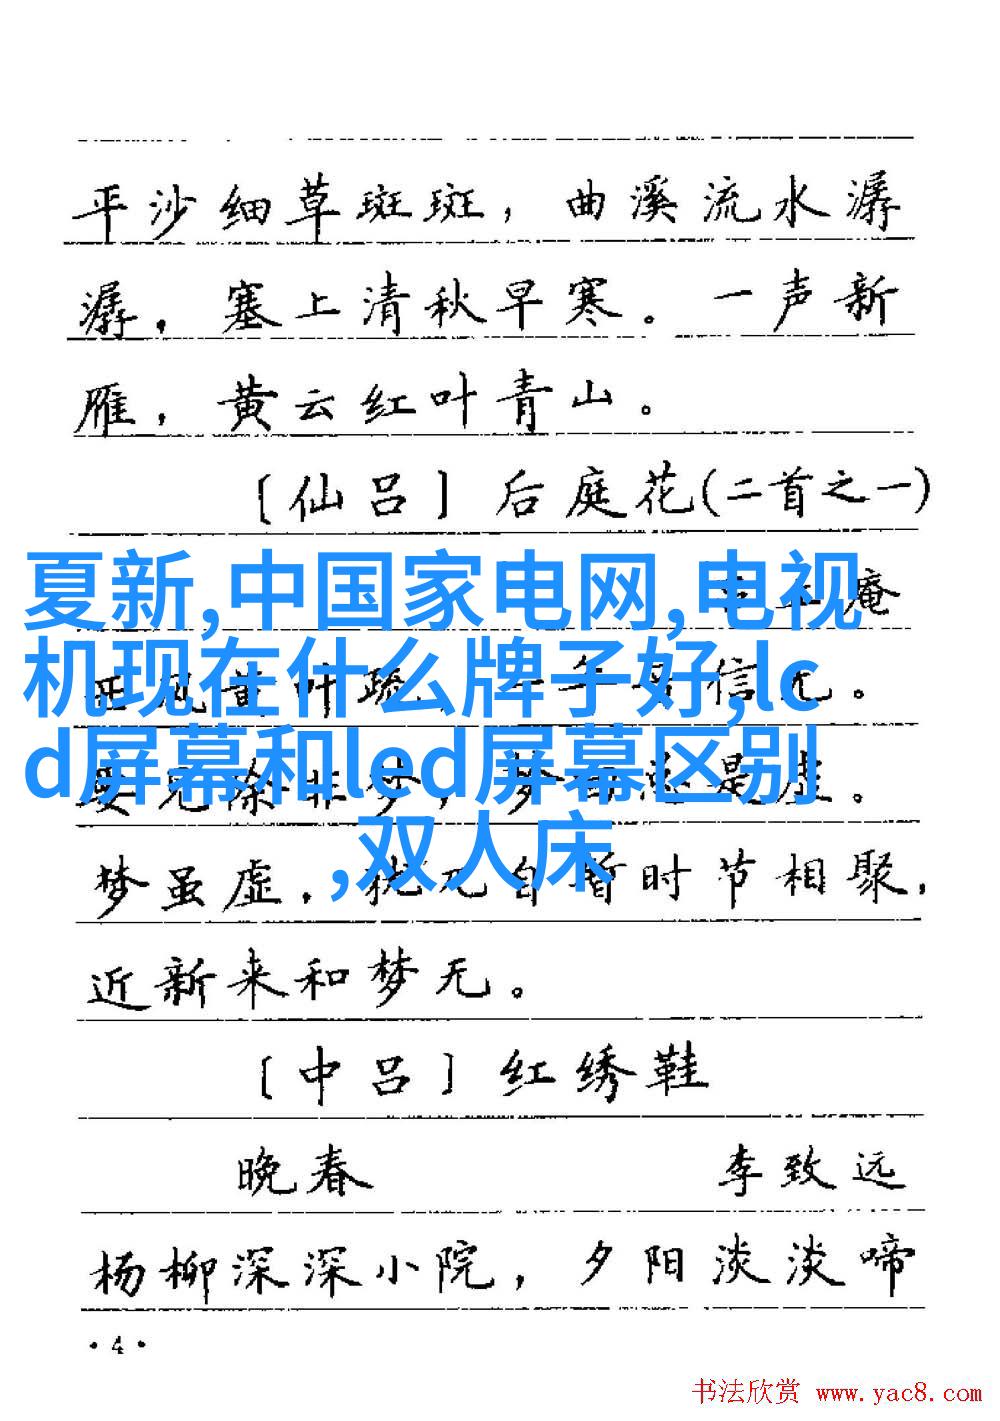 平沙细草斑斑，曲溪流水潺
潺，塞上清秋早寒。一声新
雁，黄云红叶青山。
〔仙吕〕后庭花(二首之一)
夏新,中国家电网,电视
庵
机现在什么牌子好,lc
黄叶疏，信无。
d屏幕和led屏幕区别
见除非梦，梦是虚。
,双人床
梦虽虚，自暂时节相聚，
近新来和梦无。
〔中吕〕红绣鞋
晚春 李致远
杨柳深深小院，夕阳淡淡啼
·4·
书法欣赏 www.yac8.com